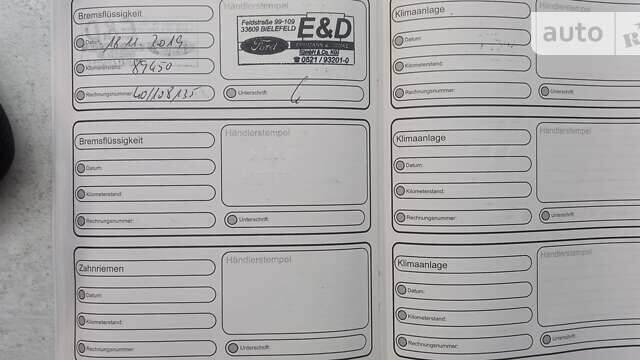 Bremsflüssigkeit
Datum: 18.11.2019
Kilometerstand: 89450
Rechnungsnummer: 40/108135
Feldstraße 99-109
33609 BIELEFELD
E&D
Ford
GmbH & Co. KG
☎ 0521 / 93201-0
Unterschrift:
Klimaanlage
Datum:
Kilometerstand:
Rechnungsnummer:
Händlerstempel
auto
Bremsflüssigkeit
Datum:
Kilometerstand:
Rechnungsnummer:
Händlerstempel
Unterschrift:
Klimaanlage
Datum:
Kilometerstand:
Rechnungsnummer:
Händlerstempel
Unterschrift:
Zahnriemen
Datum:
Kilometerstand:
Rechnungsnummer:
Händlerstempel
Unterschrift:
Klimaanlage
Datum:
Kilometerstand:
Rechnungsnummer:
Händlerstempel